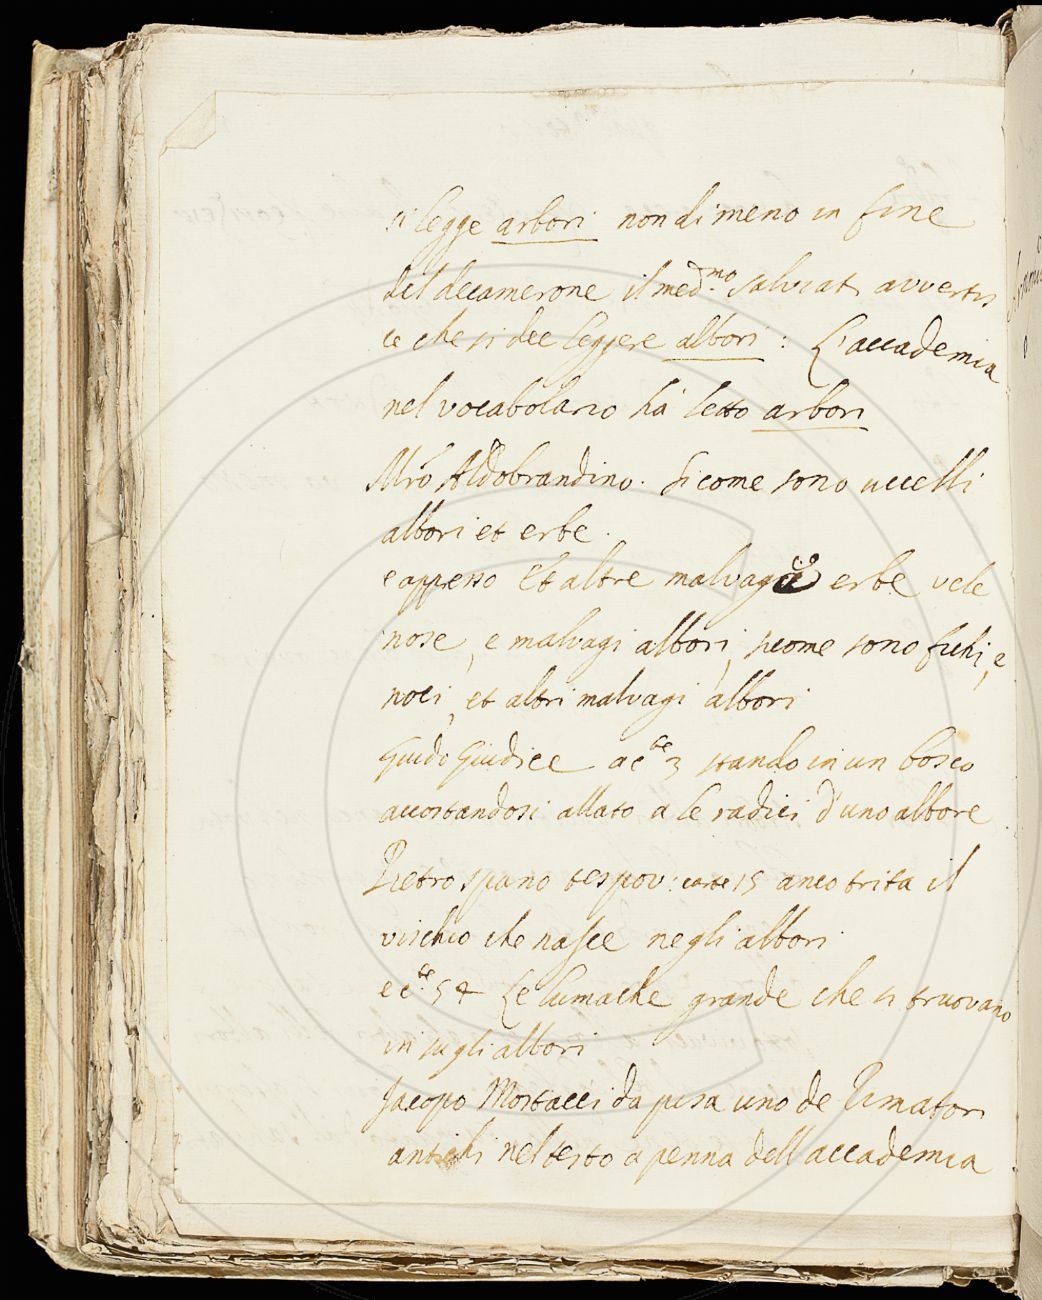 si legge arbori nondimeno in fine
del decamerone il med.mo Salviati avvertis
ce che si dee leggere albori : L'accademia
nel vocabolario ha' letto arbori
Mro Aldobrandino. Sicome sono uccelli
albori et erbe.
e appresso Et altre malvagie erbe vele
nose, e malvagi albori, sicome sono fichi, e
noci, et altri malvagi albori
Guido Giudice a cte 3 stando in un bosco
accostandosi allato a le radici d'uno albore
Pietro spano tes pov: carte 15 anco trita il
vischio che nasce negli albori
e cte. 54 Le lumache grande che si truovano
in su gli albori
Jacopo Mostacci da pisa uno de Rimatori
antichi nel testo a penna dell accademia